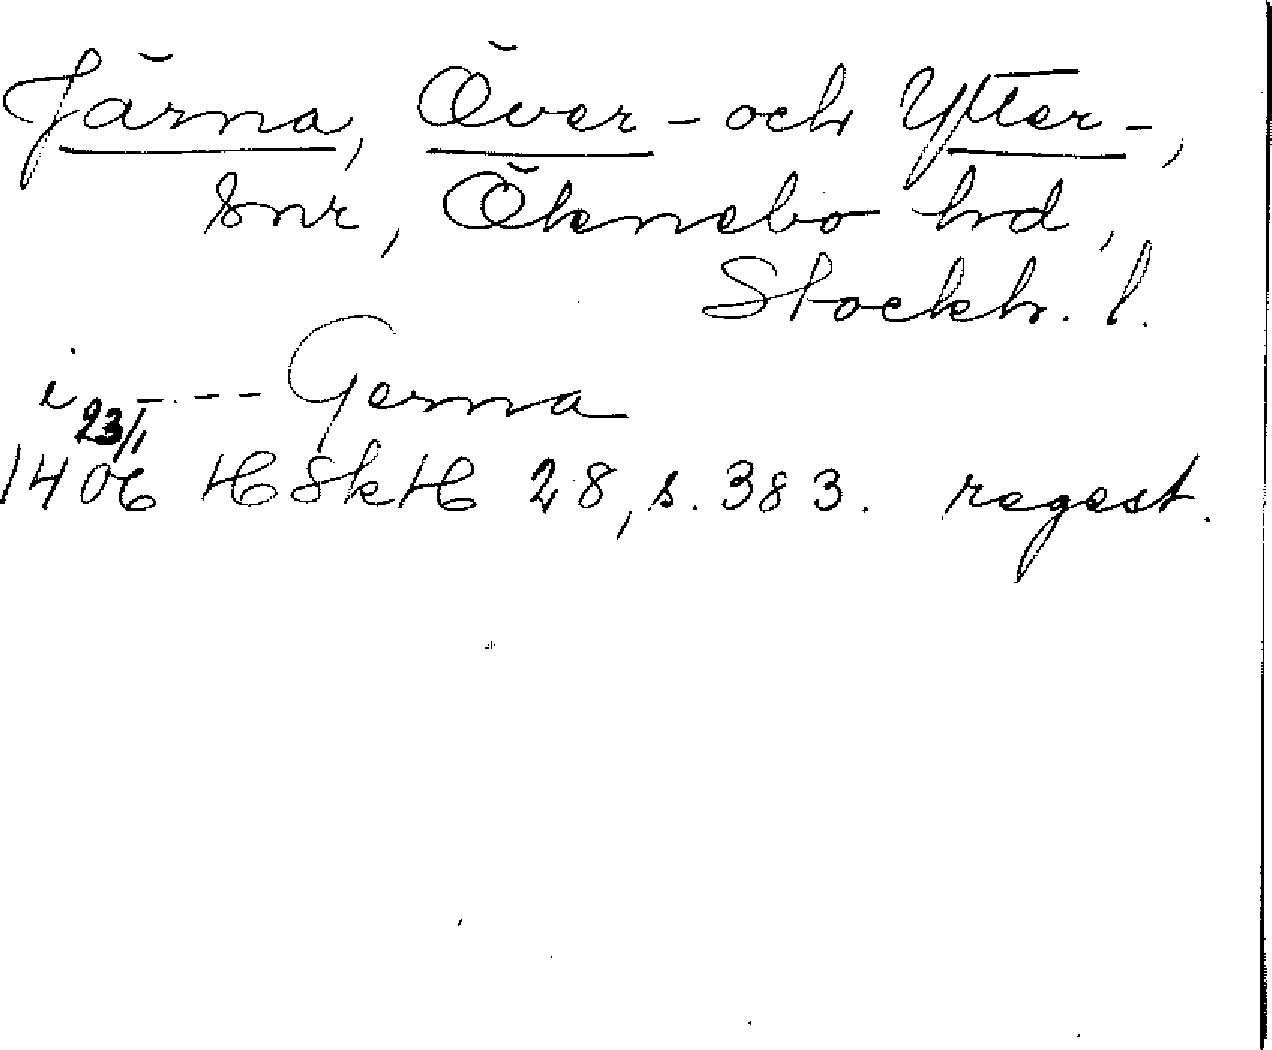 Järna, Över- och Ytter-,
snr, Öknebo hd,
Stockh. l.
i ---- Gerna
23/1
1406 HSkH 28, s. 383. regest.